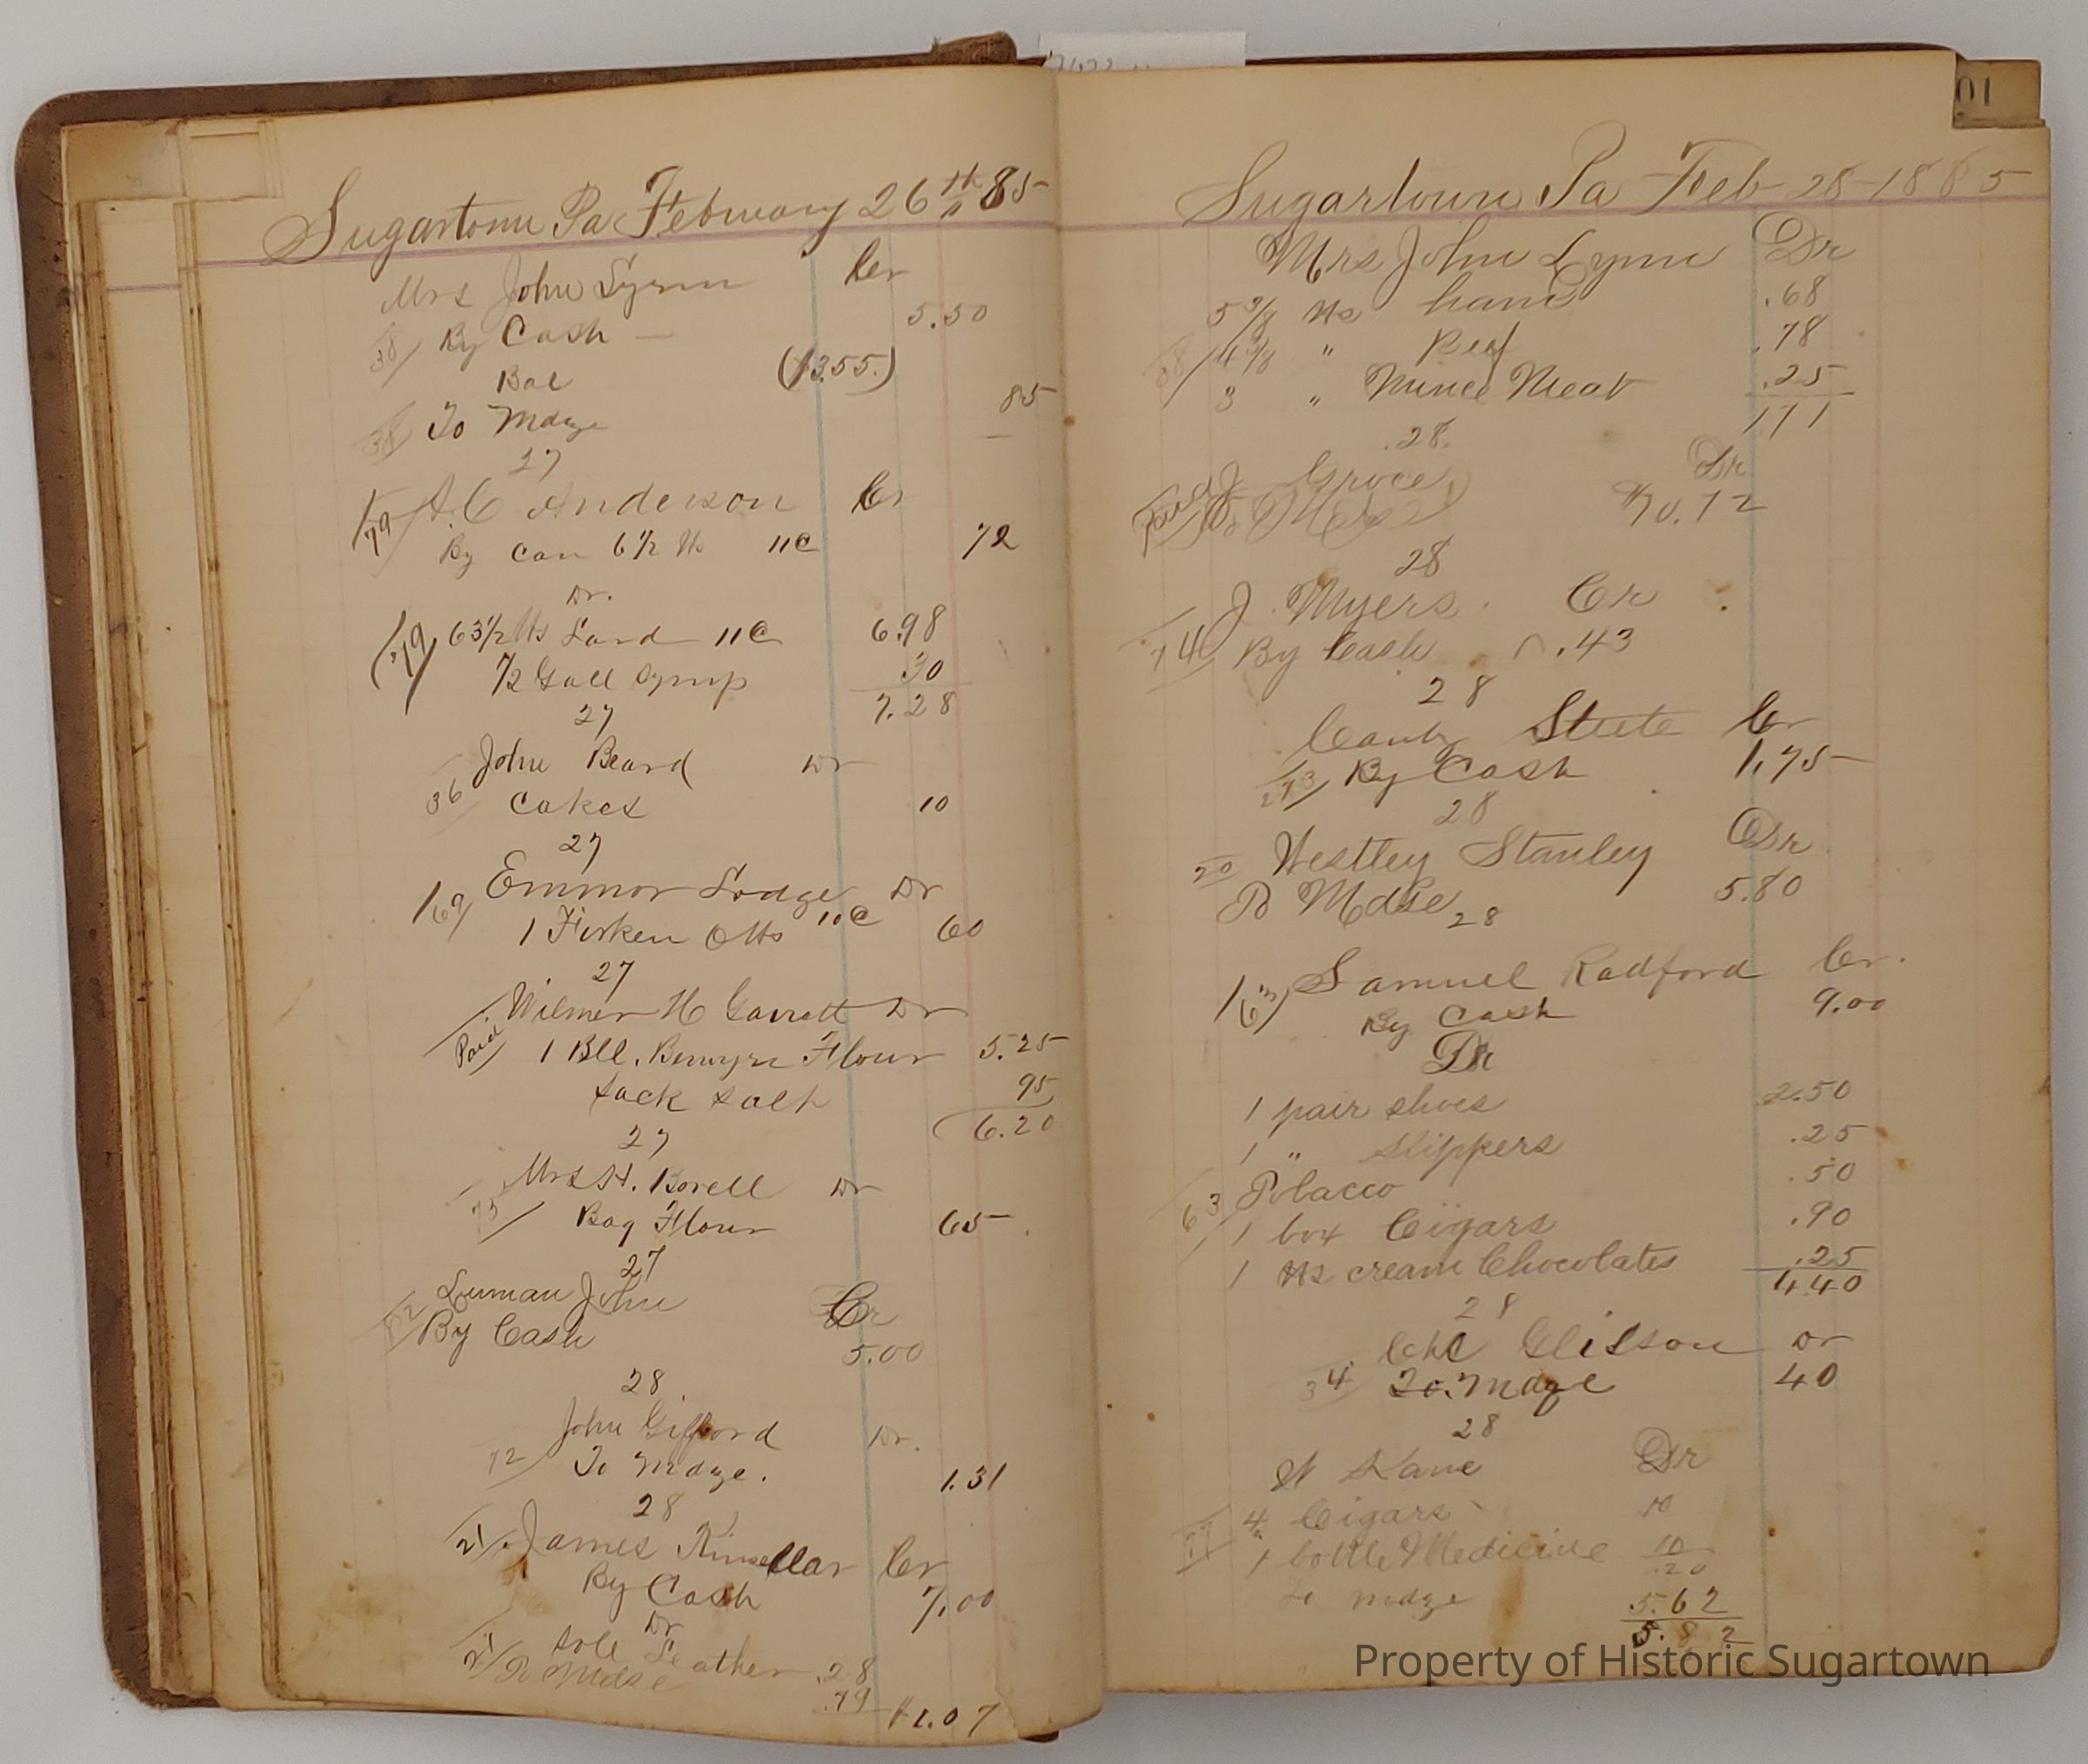 Sugartown Pa February 26th 85
Mrs John Lynn Cr
38 By Cash 5.50
Bal (13.55.)
38 To Mdze 85
27
79 A. C Anderson Cr
By Can 6 1/2 lbs 11c 72
Dr.
79 63 1/2 lbs Lard 11c 6.98
1/2 Gall Syrup 30
27 7.28
John Beard Dr
36 Cakes 10
27
69 Emmor Lodge Dr
1 Firken 6 lbs 10c 60
27
Wilmer H Garrett Dr
Paid 1 Bll. Berwyn Flour 5.25
Sack Salt 95
27 6.20
Mrs H. Borell Dr
75 Bag Flour 65
27
Luman John Cr
82 By Cash 5.00
28
John Gifford Dr.
72 To Mdze. 1.31
28
21 James Kinsellar Cr
By Cash 7.00
Dr
21 Sole Leather .28
To Mdse .79 $1.07
01
Sugartown Pa Feb 28-1885
Mrs John Lynn Dr
5 3/8 lbs ham .68
38 4 3/8 " Beef .78
3 " Mince Meat .25
28. 1 71
Paid J Groce Dr
To Mdse $70.72
28
J. Myers. Cr
74 By Cash .43
28
Canby Steete Cr
273 By Cash 1.75
28
20 Westley Stanley Dr
To Mdse 5.80
28
63 Samuel Radford Cr.
By Cash 9.00
Dr
1 pair shoes 2.50
1 " Slippers .25
63 Tobacco .50
1 box Cigars .90
1 lbs cream Chocolates .25
28 4.40
Gibson Dr
34 To. Mdze 40
28
W Kane Dr
77 4 Cigars 10
1 bottle Medicine 10
.20
To mdze 5.62
5.82
Property of Historic Sugartown